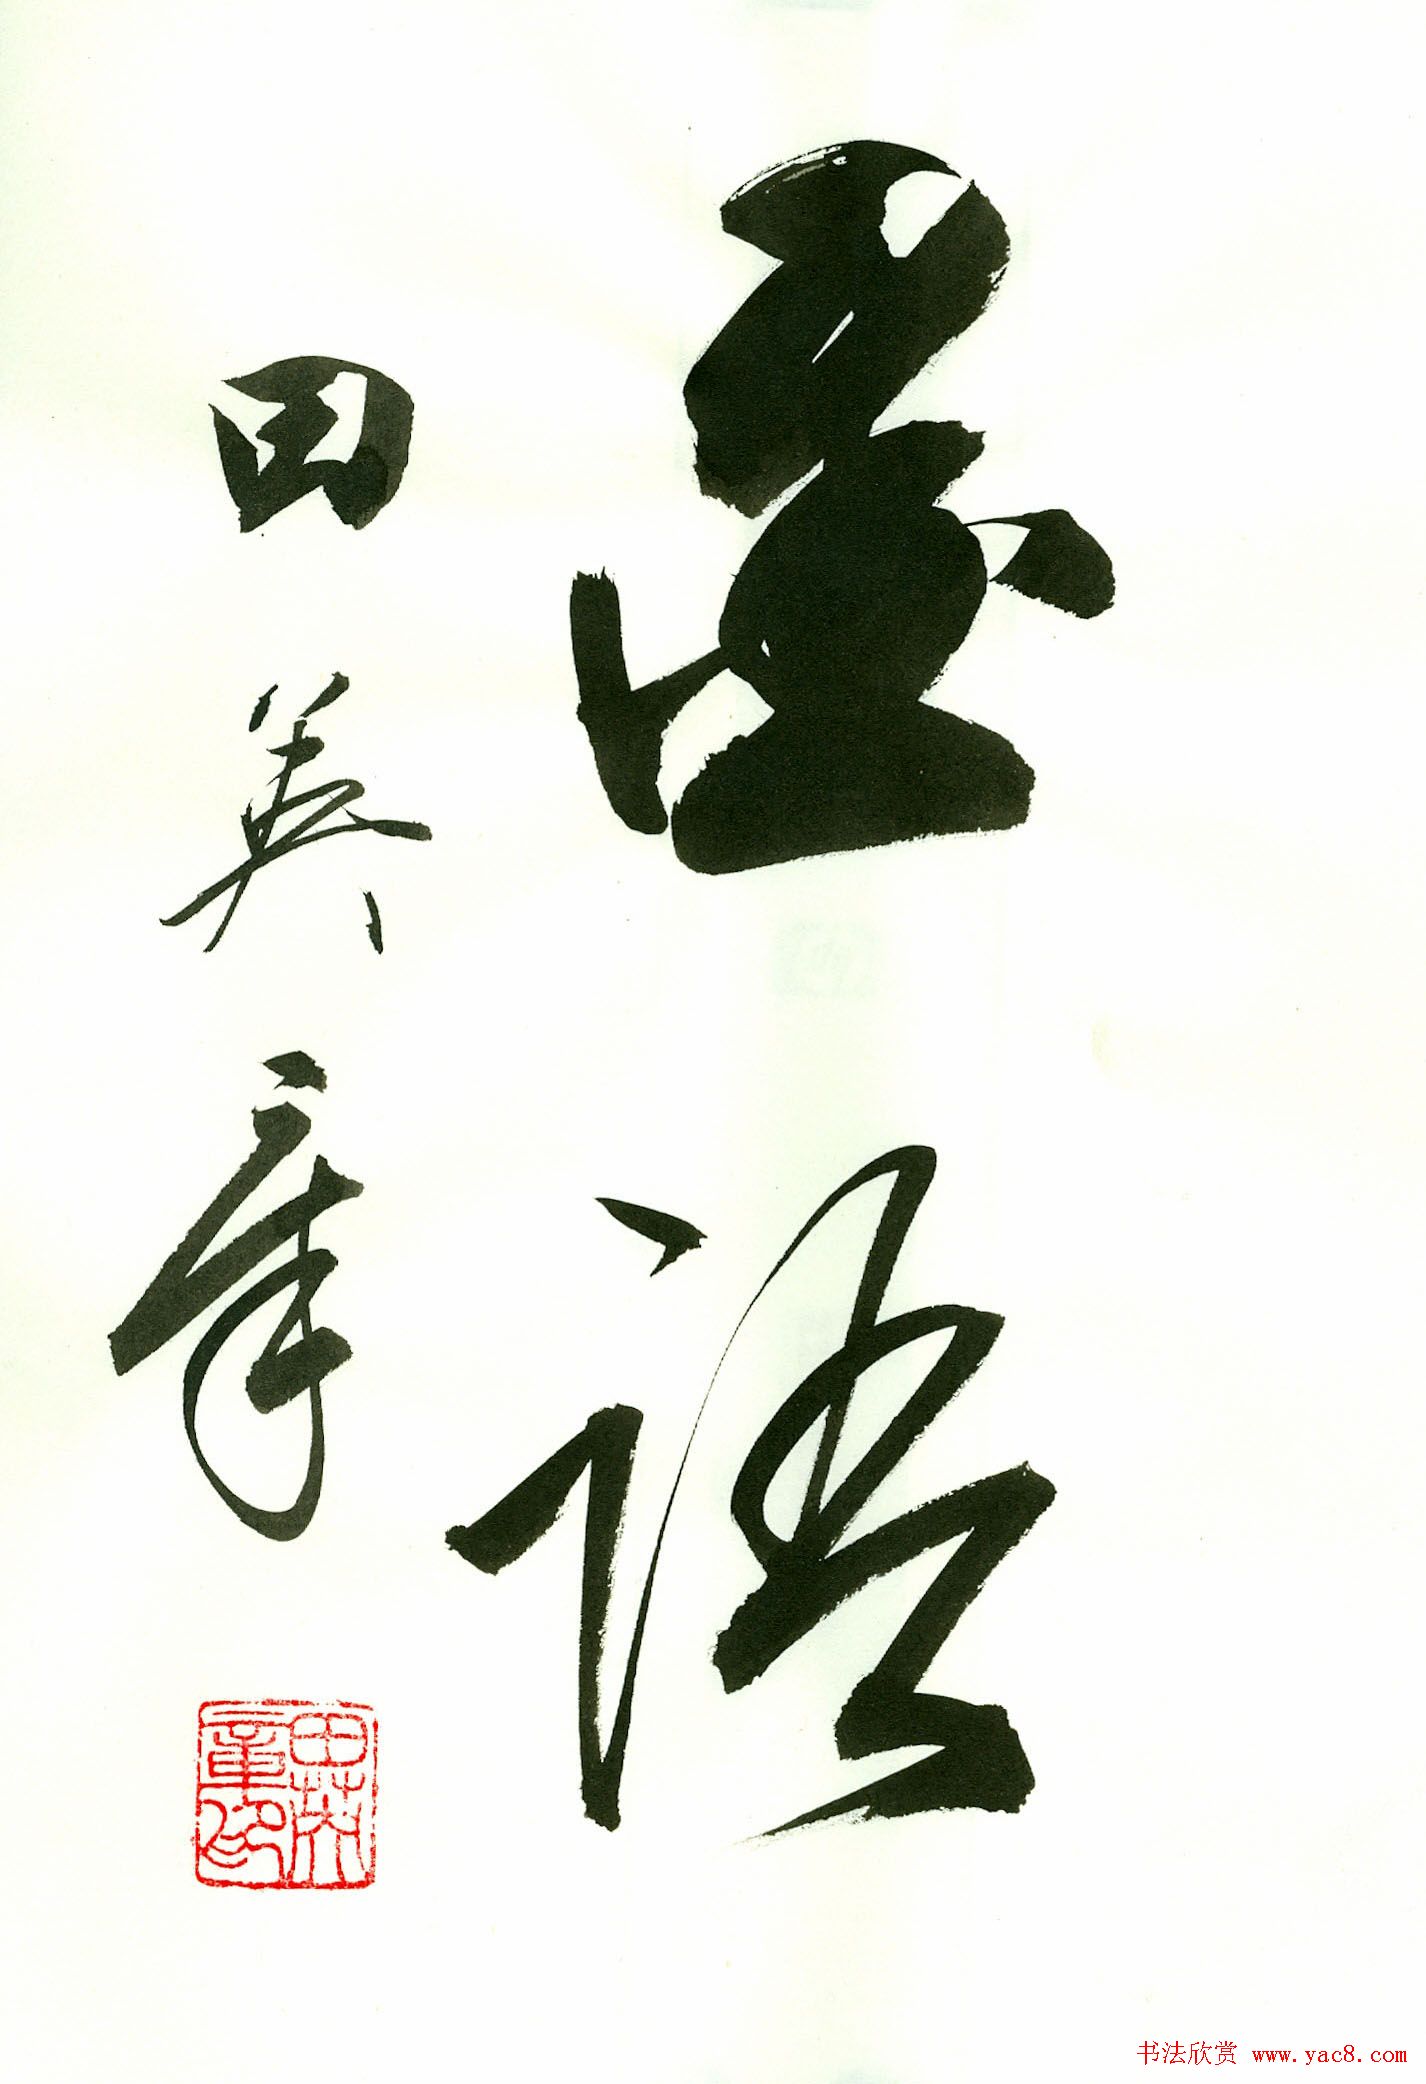 墨语
田英章
田英
章印
书法欣赏 www.yac8.com